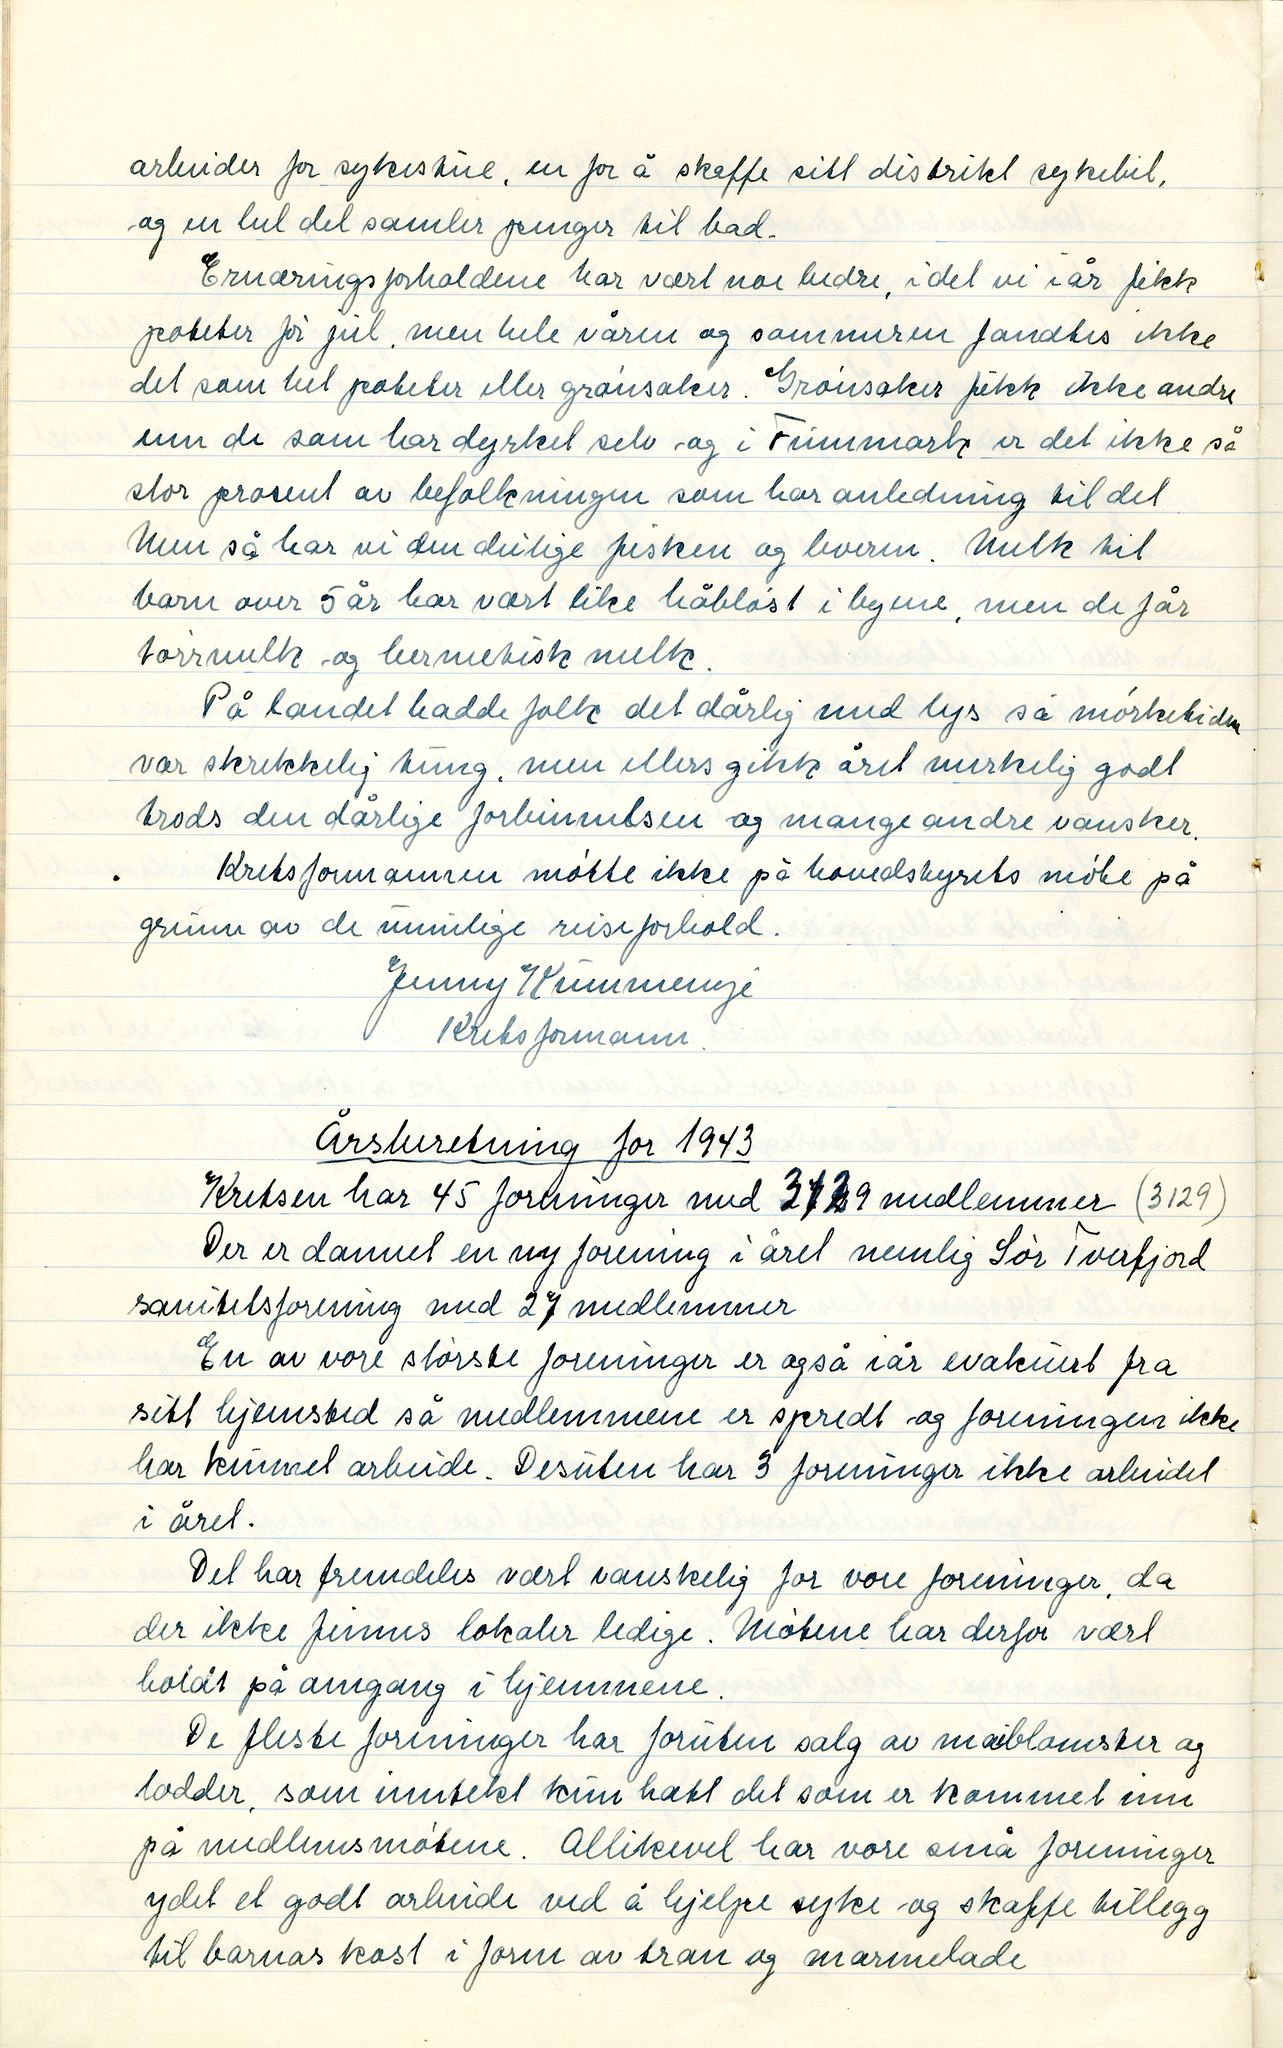 arbeider for sykestue, en for å skaffe sitt distrikt sykebil,
og en hel del samler penger til bad.
Ernæringsforholdene har vært noe bedre, idet vi i år fikk
poteter før jul, men hele våren og sommeren fandtes ikke
det som het poteter eller grønsaker. Grønsaker fikk ikke andre
enn de som har dyrket selv og i Finnmark er det ikke så
stor prosent av befolkningen som har anledning til det
Men så har vi den deilige fisken og leveren. Melk til
barn over 5 år har vært like håbløst i byene, men de får
tørrmelk og hermetisk melk.
På landet hadde folk det dårlig med lys så mørketiden
var skrekkelig tung, men ellers gikk året merkelig godt
trods den dårlige forbindelsen og mange andre vansker.
Kretsformannen møtte ikke på hovedstyrets møte på
grunn av de umulige reiseforhold.
Jenny Kummenejé
Kretsformann.
Årsberetning for 1943
Kretsen har 45 foreninger med 3129 medlemmer (3129)
Der er dannet en ny forening i året nemlig Sør Tverfjord
sanitetsforening med 27 medlemmer
En av vore største foreninger er også i år evakuert fra
sitt hjemsted så medlemmene er spredt og foreningen ikke
har kunnet arbeide. Desuten har 3 foreninger ikke arbeidet
i året.
Det har fremdeles vært vanskelig for vore foreninger, da
der ikke finnes lokaler ledige. Møtene har derfor vært
holdt på omgang i hjemmene.
De fleste foreninger har foruten salg av maiblomster og
lodder, som inntekt kun hatt det som er kommet inn
på medlemsmøtene. Allikevel har vore små foreninger
ydet et godt arbeide ved å hjelpe syke og skaffe tillegg
til barnas kost i form av tran og marmelade